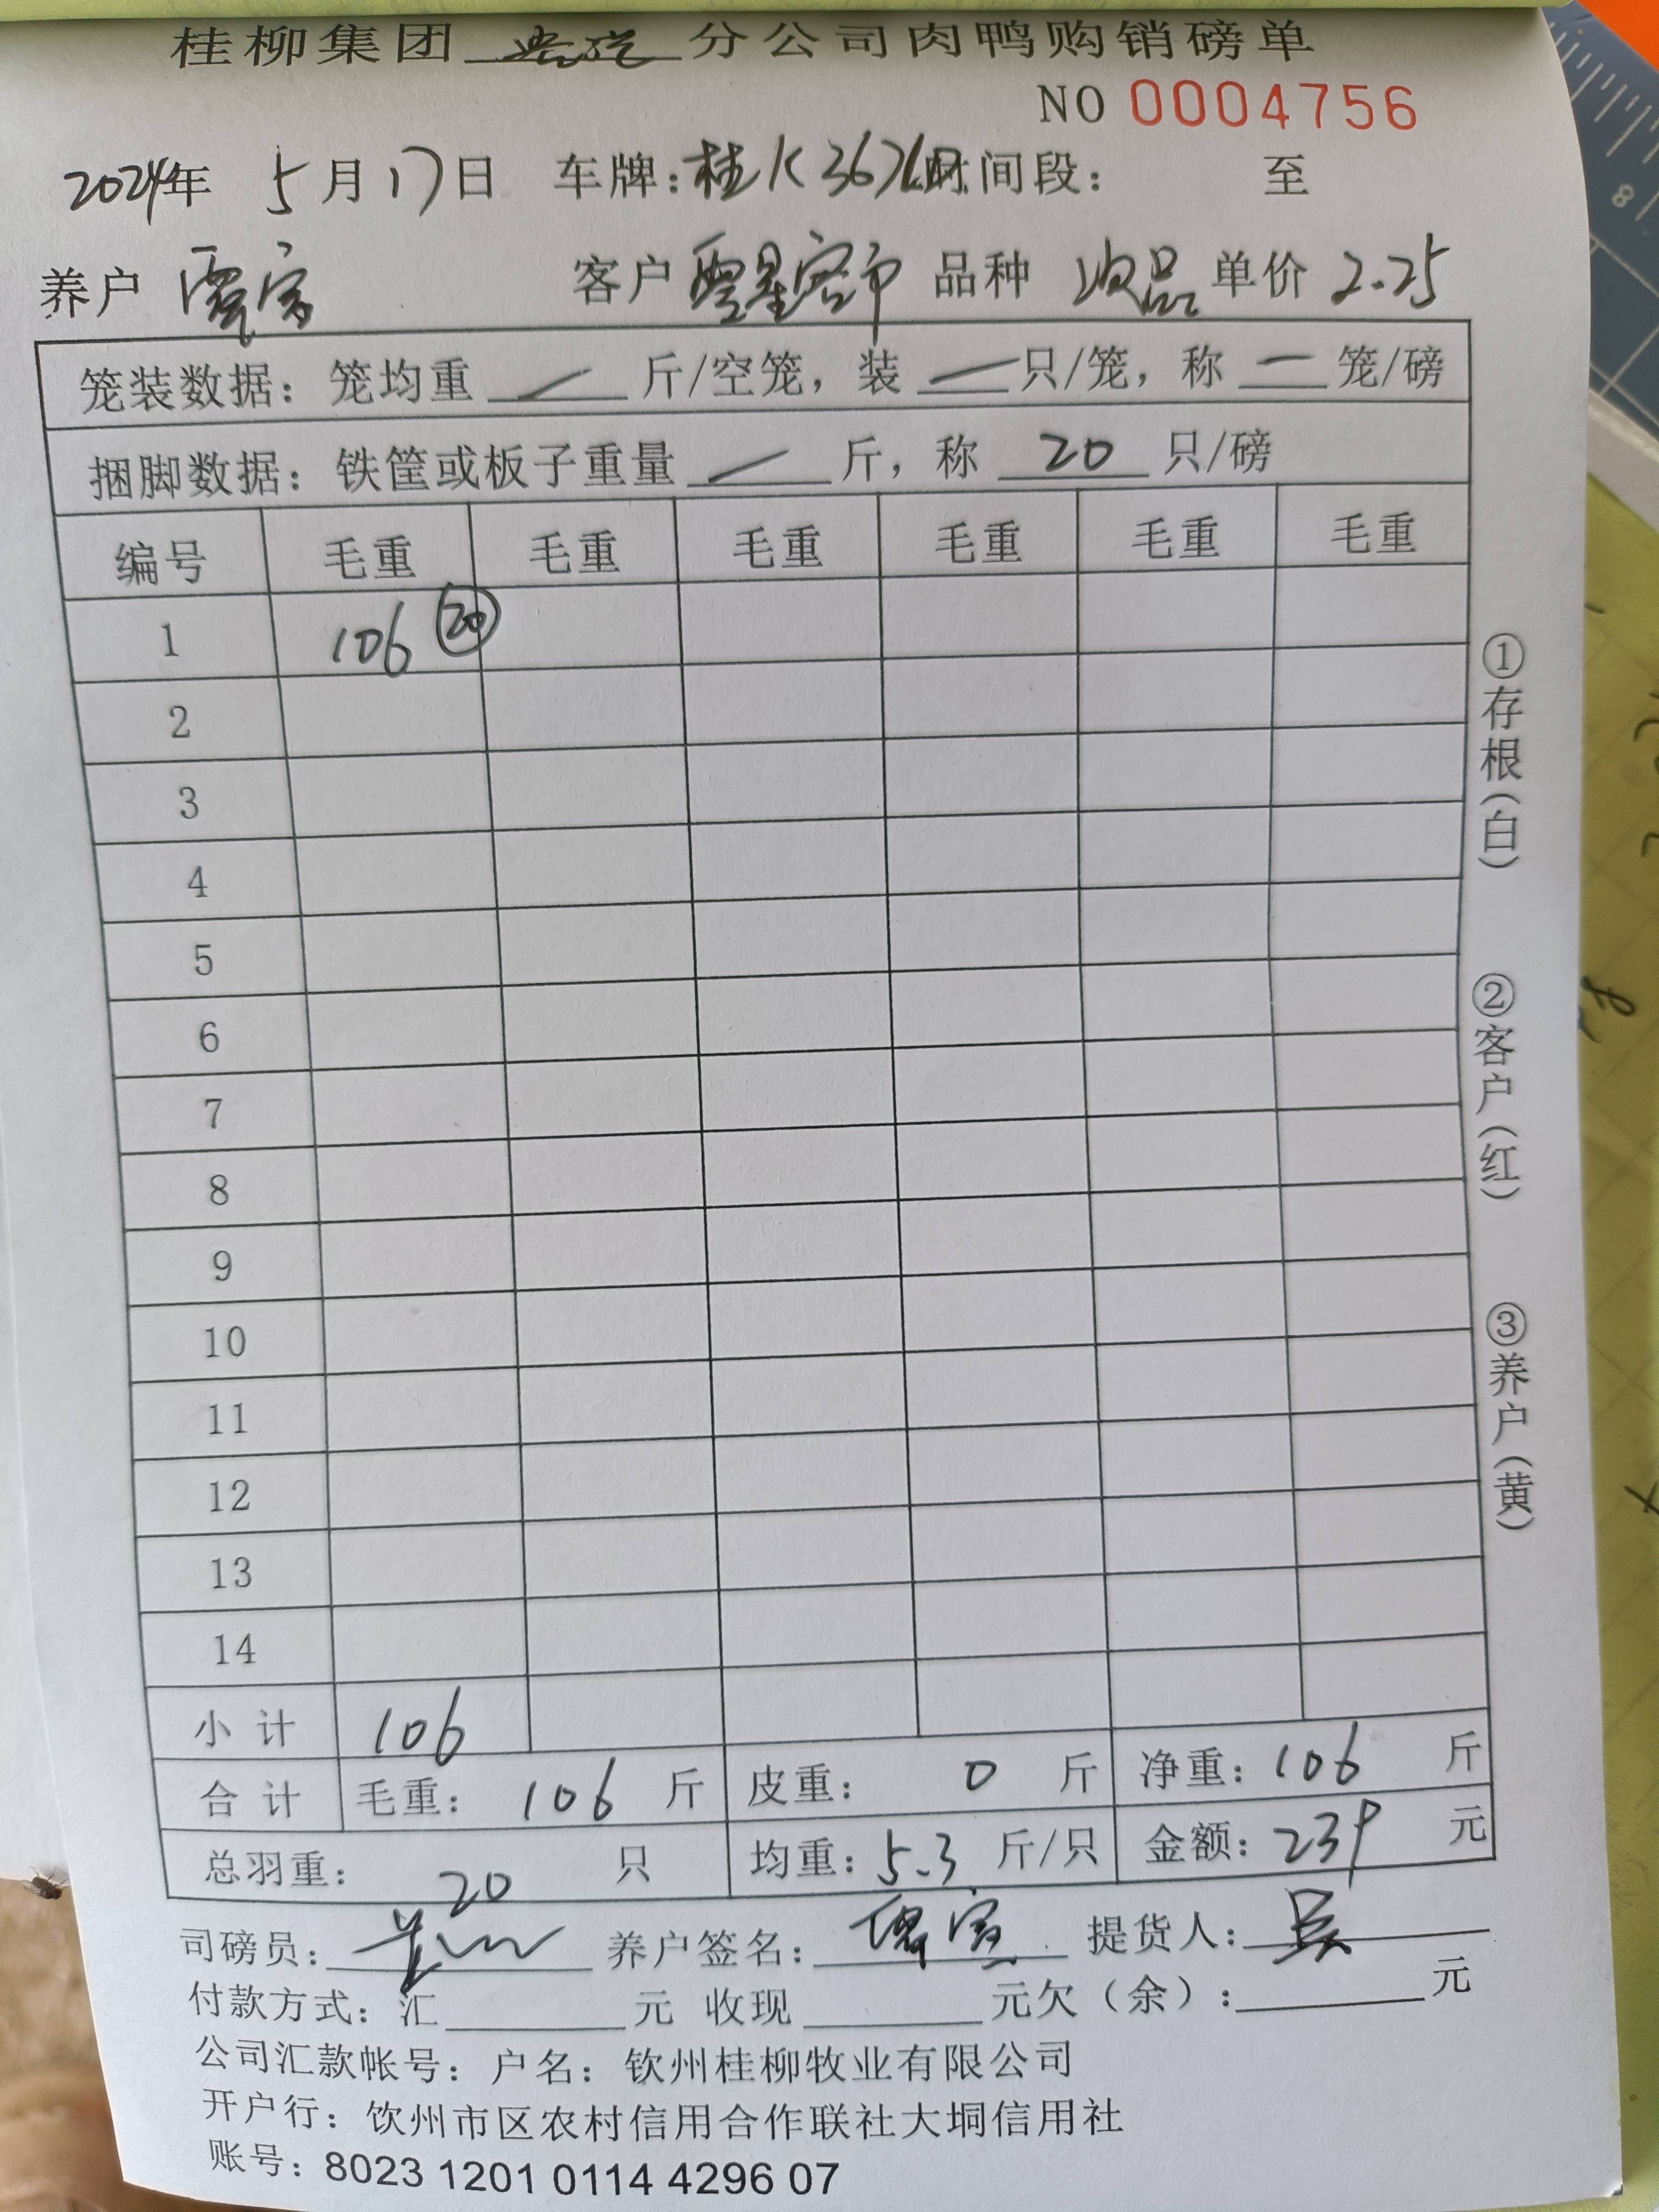 桂柳集团 分公司肉鸭购销磅单
NO 0004756
2024年 5月17日 车牌:桂K 时间段: 至
养户 客户 品种 次品 单价 2.25
笼装数据: 笼均重 — 斤/空笼, 装 — 只/笼, 称 — 笼/磅
捆脚数据: 铁筐或板子重量 — 斤, 称 20 只/磅
编号 毛重 毛重 毛重 毛重 毛重 毛重
1 106 ⑳
2
3
4
5
6
7
8
9
10
11
12
13
14
小计 106
合计 毛重: 106 斤 皮重: 0 斤 净重: 106 斤
总羽重: 20 只 均重: 5.3 斤/只 金额: 239 元
司磅员: 养户签名: 提货人: 吴
付款方式: 汇 元 收现 元欠(余): 元
公司汇款帐号: 户名: 钦州桂柳牧业有限公司
开户行: 饮州市区农村信用合作联社大垌信用社
账号: 8023 1201 0114 4296 07
①存根(白)
②客户(红)
③养户(黄)